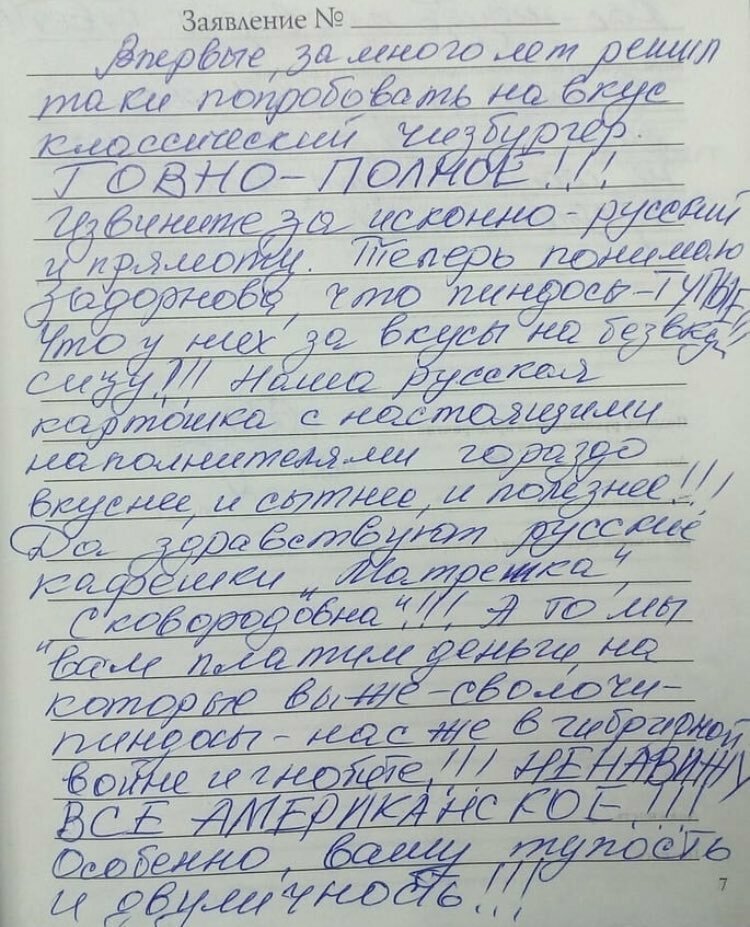 Заявление №
Впервые, за много лет решил
таки попробовать на вкус
классический чизбургер.
ГОВНО-ПОЛНОЕ!!!
Извините за исконно-русский
и прямоту. Теперь понимаю
Задорнова, что пиндосы-ТУПЫЕ!!!
Что у них за вкусы на безвку
сицу!!! Наша русская
картошка с настоящими
наполнителями гораздо
вкуснее, и сытнее, и полезнее!!!
Да здравствуют русские
кафешки „Матрешка“,
„Сковородовна“!!! А то мы
вам платим деньги, на
которые вы же-сволочи-
пиндосы-нас же в гибридной
войне и гнобите!!! НЕНАВИЖУ
ВСЕ АМЕРИКАНСКОЕ!!!
Особенно, вашу тупость
и двуличность!!!
7